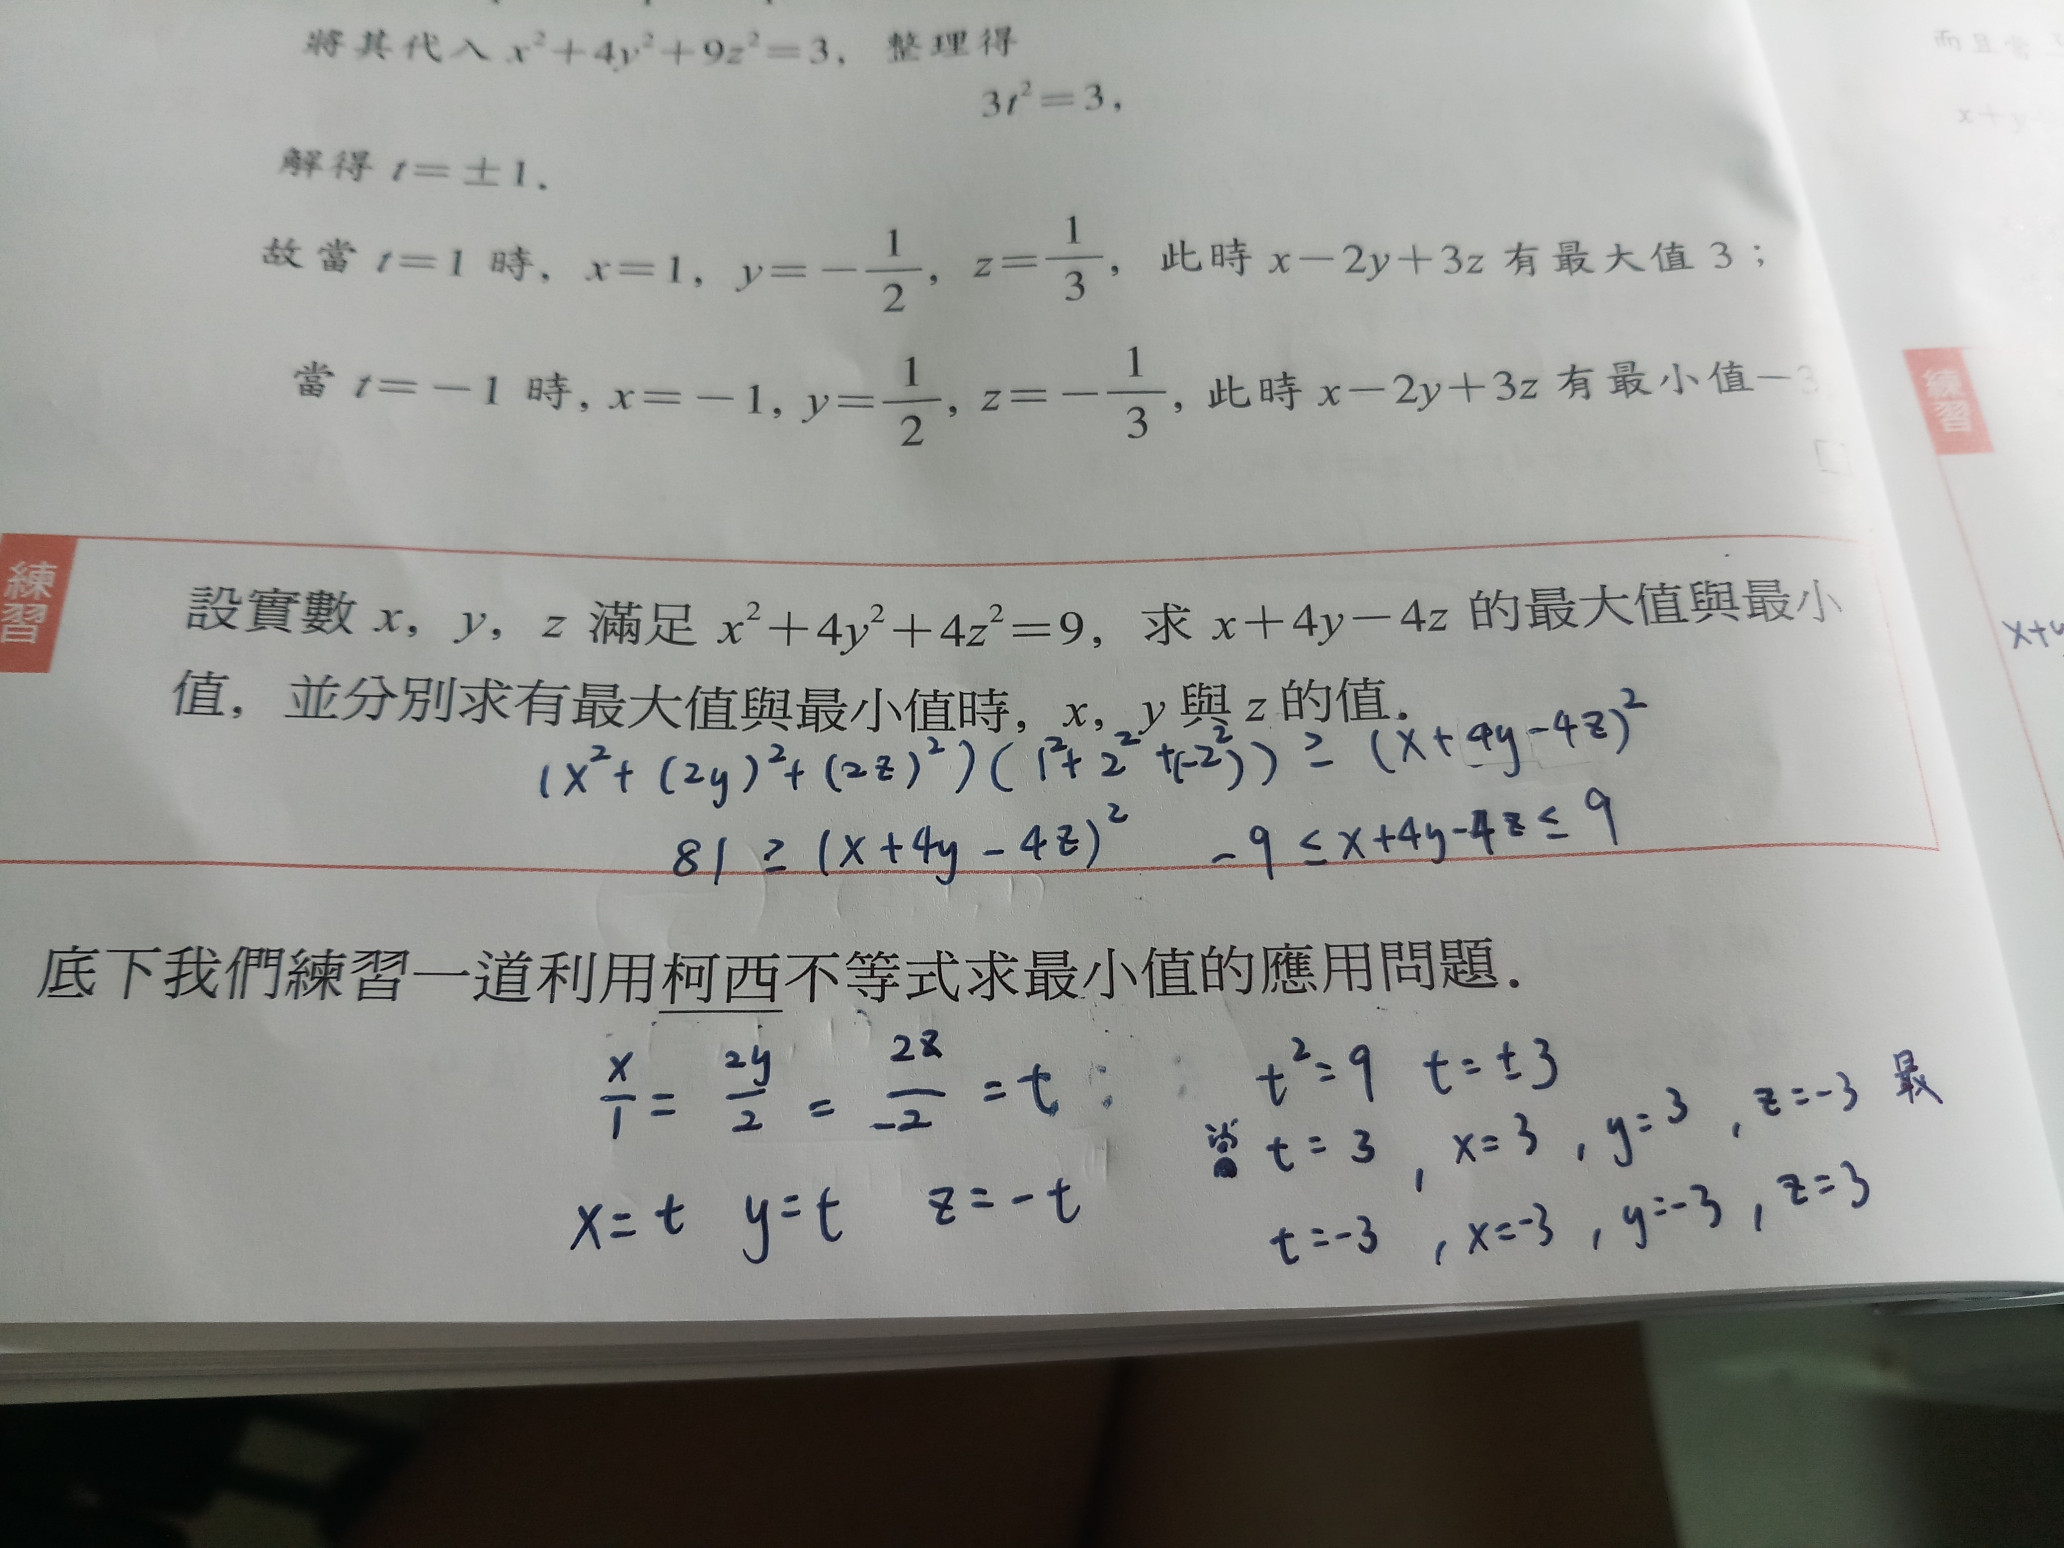 將其代入 x²+4y²+9z²=3，整理得
3t²=3，
解得 t=±1．
故當 t=1 時，x=1，y=-1/2，z=1/3，此時 x-2y+3z 有最大值 3；
當 t=-1 時，x=-1，y=1/2，z=-1/3，此時 x-2y+3z 有最小值-3
練習
設實數 x，y，z 滿足 x²+4y²+4z²=9，求 x+4y-4z 的最大值與最小
值，並分別求有最大值與最小值時，x，y 與 z 的值．
(x²+(2y)²+(2z)²)(1²+2²+(-2)²)) ≥ (x+4y-4z)²
81 ≥ (x+4y-4z)² -9≤x+4y-4z≤9
底下我們練習一道利用柯西不等式求最小值的應用問題．
x/1 = 2y/2 = 2z/-2 = t :
x=t y=t z=-t
t²=9 t=±3
當 t=3, x=3, y=3, z=-3 最
t=-3, x=-3, y=-3, z=3
而且當
x+y
練習
x+y